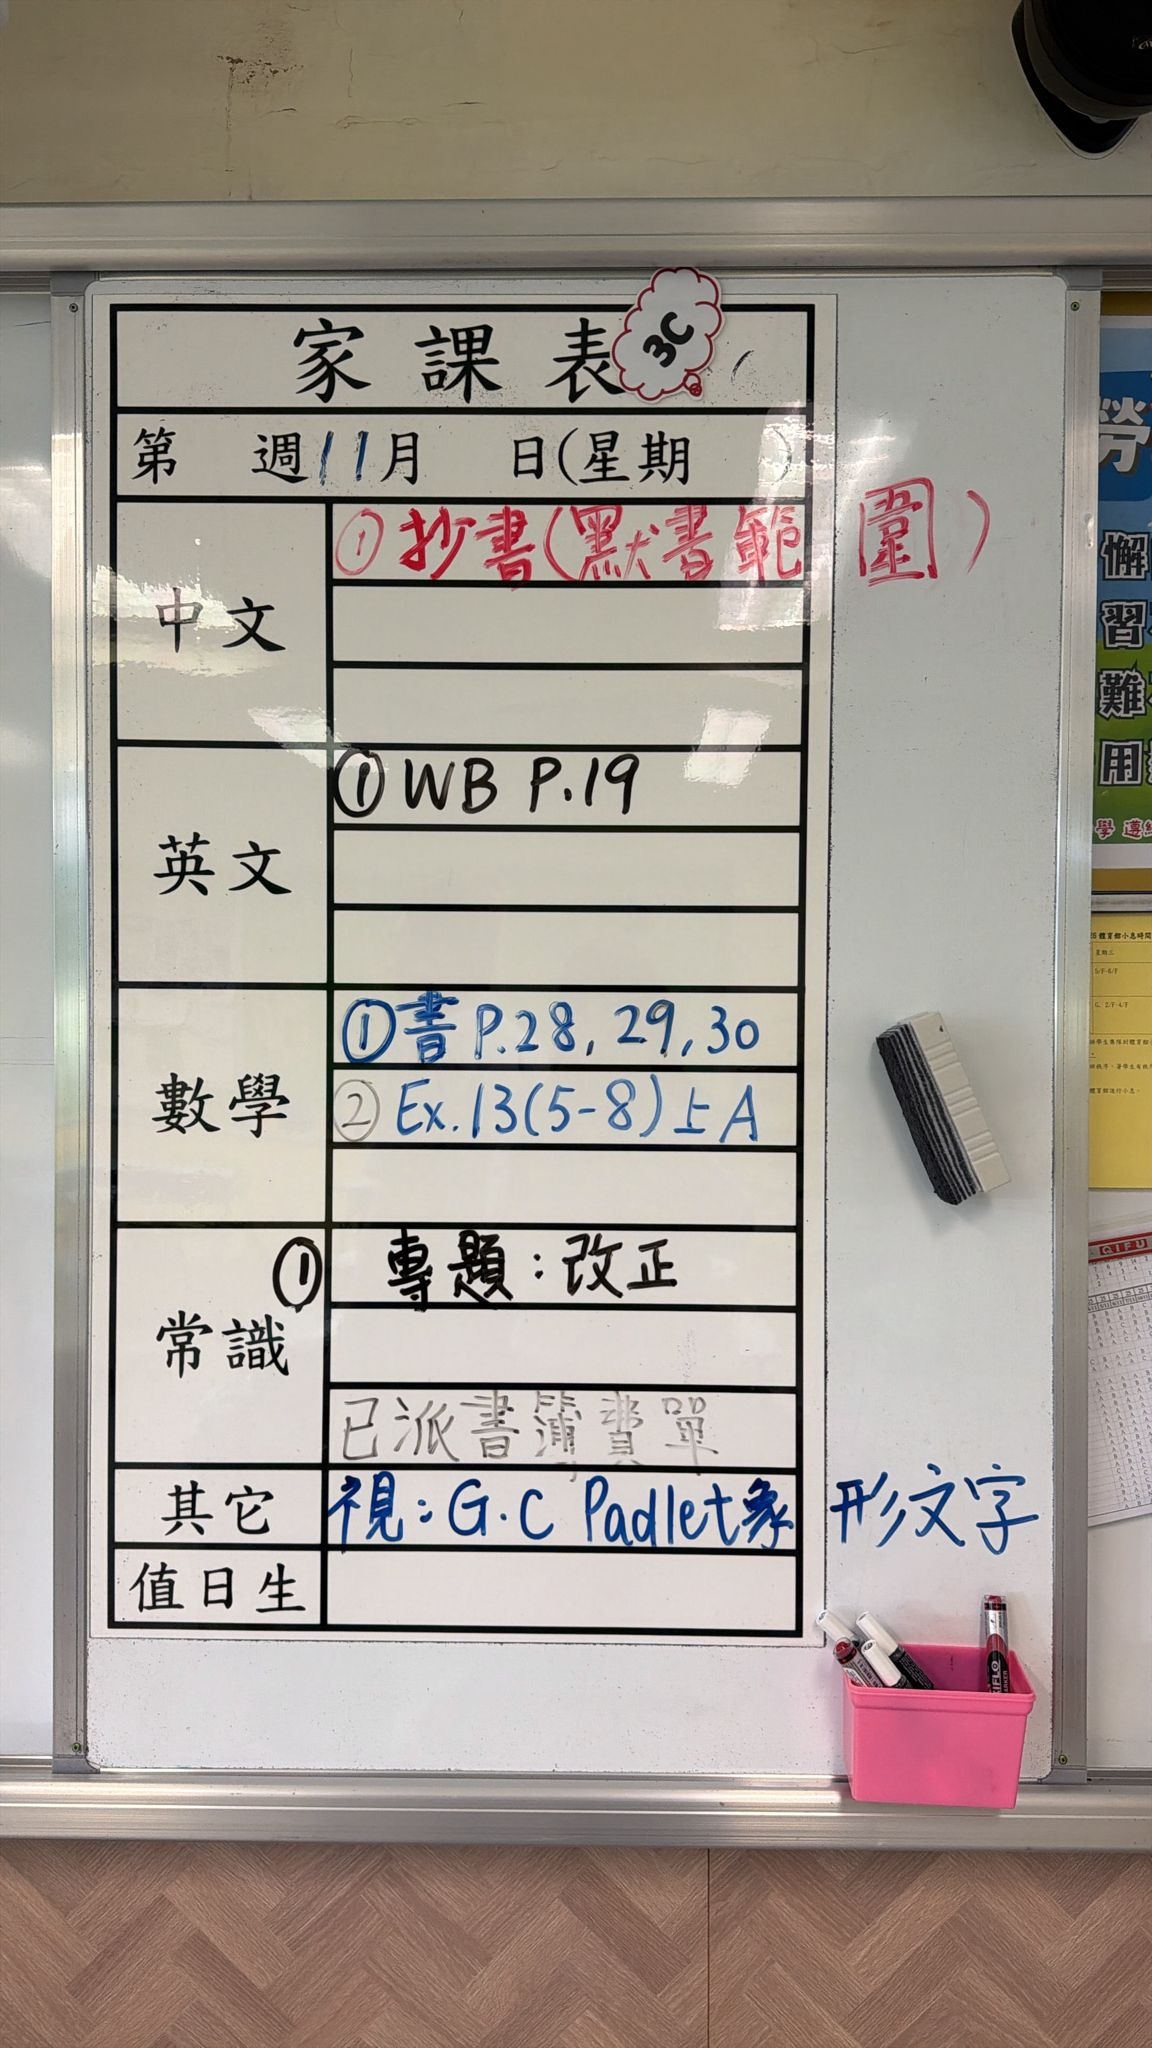 家課表
3C
第 週11月 日(星期 )
中文
①抄書(默書範圍)
英文
①WB P.19
數學
①書P.28,29,30
②Ex.13(5-8)上A
常識
① 專題:改正
已派書簿費單
其它
視:G.C Padlet象形文字
值日生
勞
懈
習
難
用
學 遵
體育館小息時間
星期三
5/F-6/F
G, 2/F-4/F
QIFU